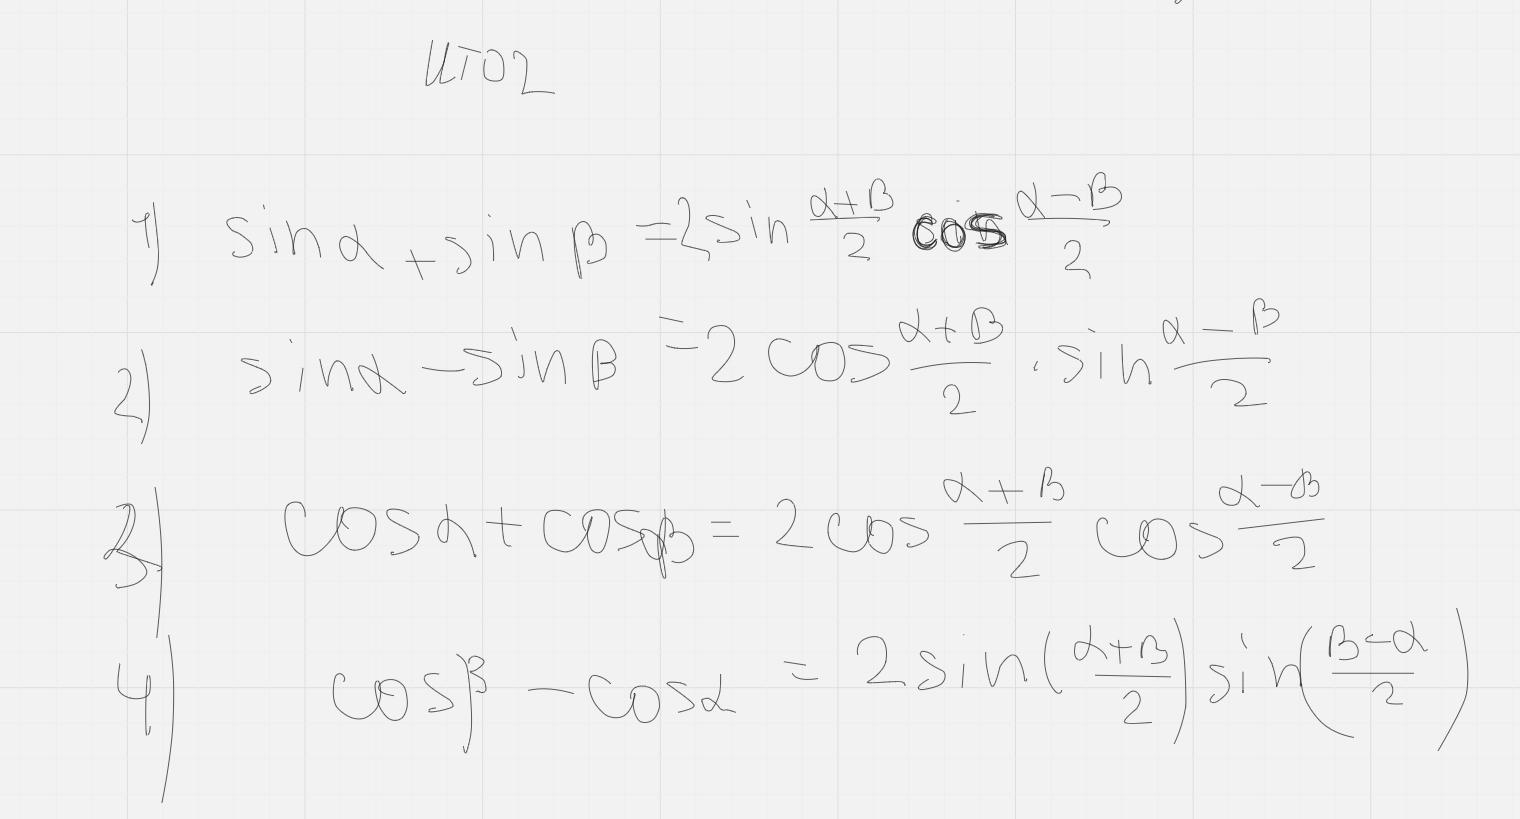 ИТО2
1) sin α + sin β = 2 sin (α+β)/2 cos (α−β)/2
2) sin α − sin β = 2 cos (α+β)/2 · sin (α−β)/2
3) cos α + cos β = 2 cos (α+β)/2 cos (α−β)/2
4) cos β − cos α = 2 sin ((α+β)/2) sin ((β−α)/2)